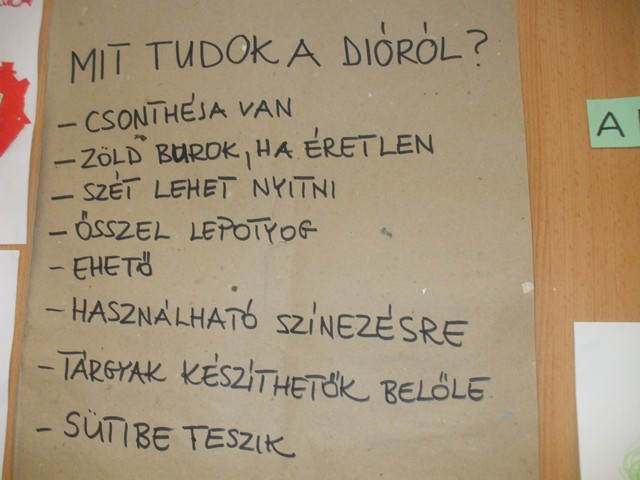 MIT TUDOK A DIÓRÓL?
- CSONTHÉJA VAN
- ZÖLD BUROK, HA ÉRETLEN
- SZÉT LEHET NYITNI
- ŐSSZEL LEPOTYOG
- EHETŐ
- HASZNÁLHATÓ SZÍNEZÉSRE
- TÁRGYAK KÉSZÍTHETŐK BELŐLE
- SÜTIBE TESZIK
A